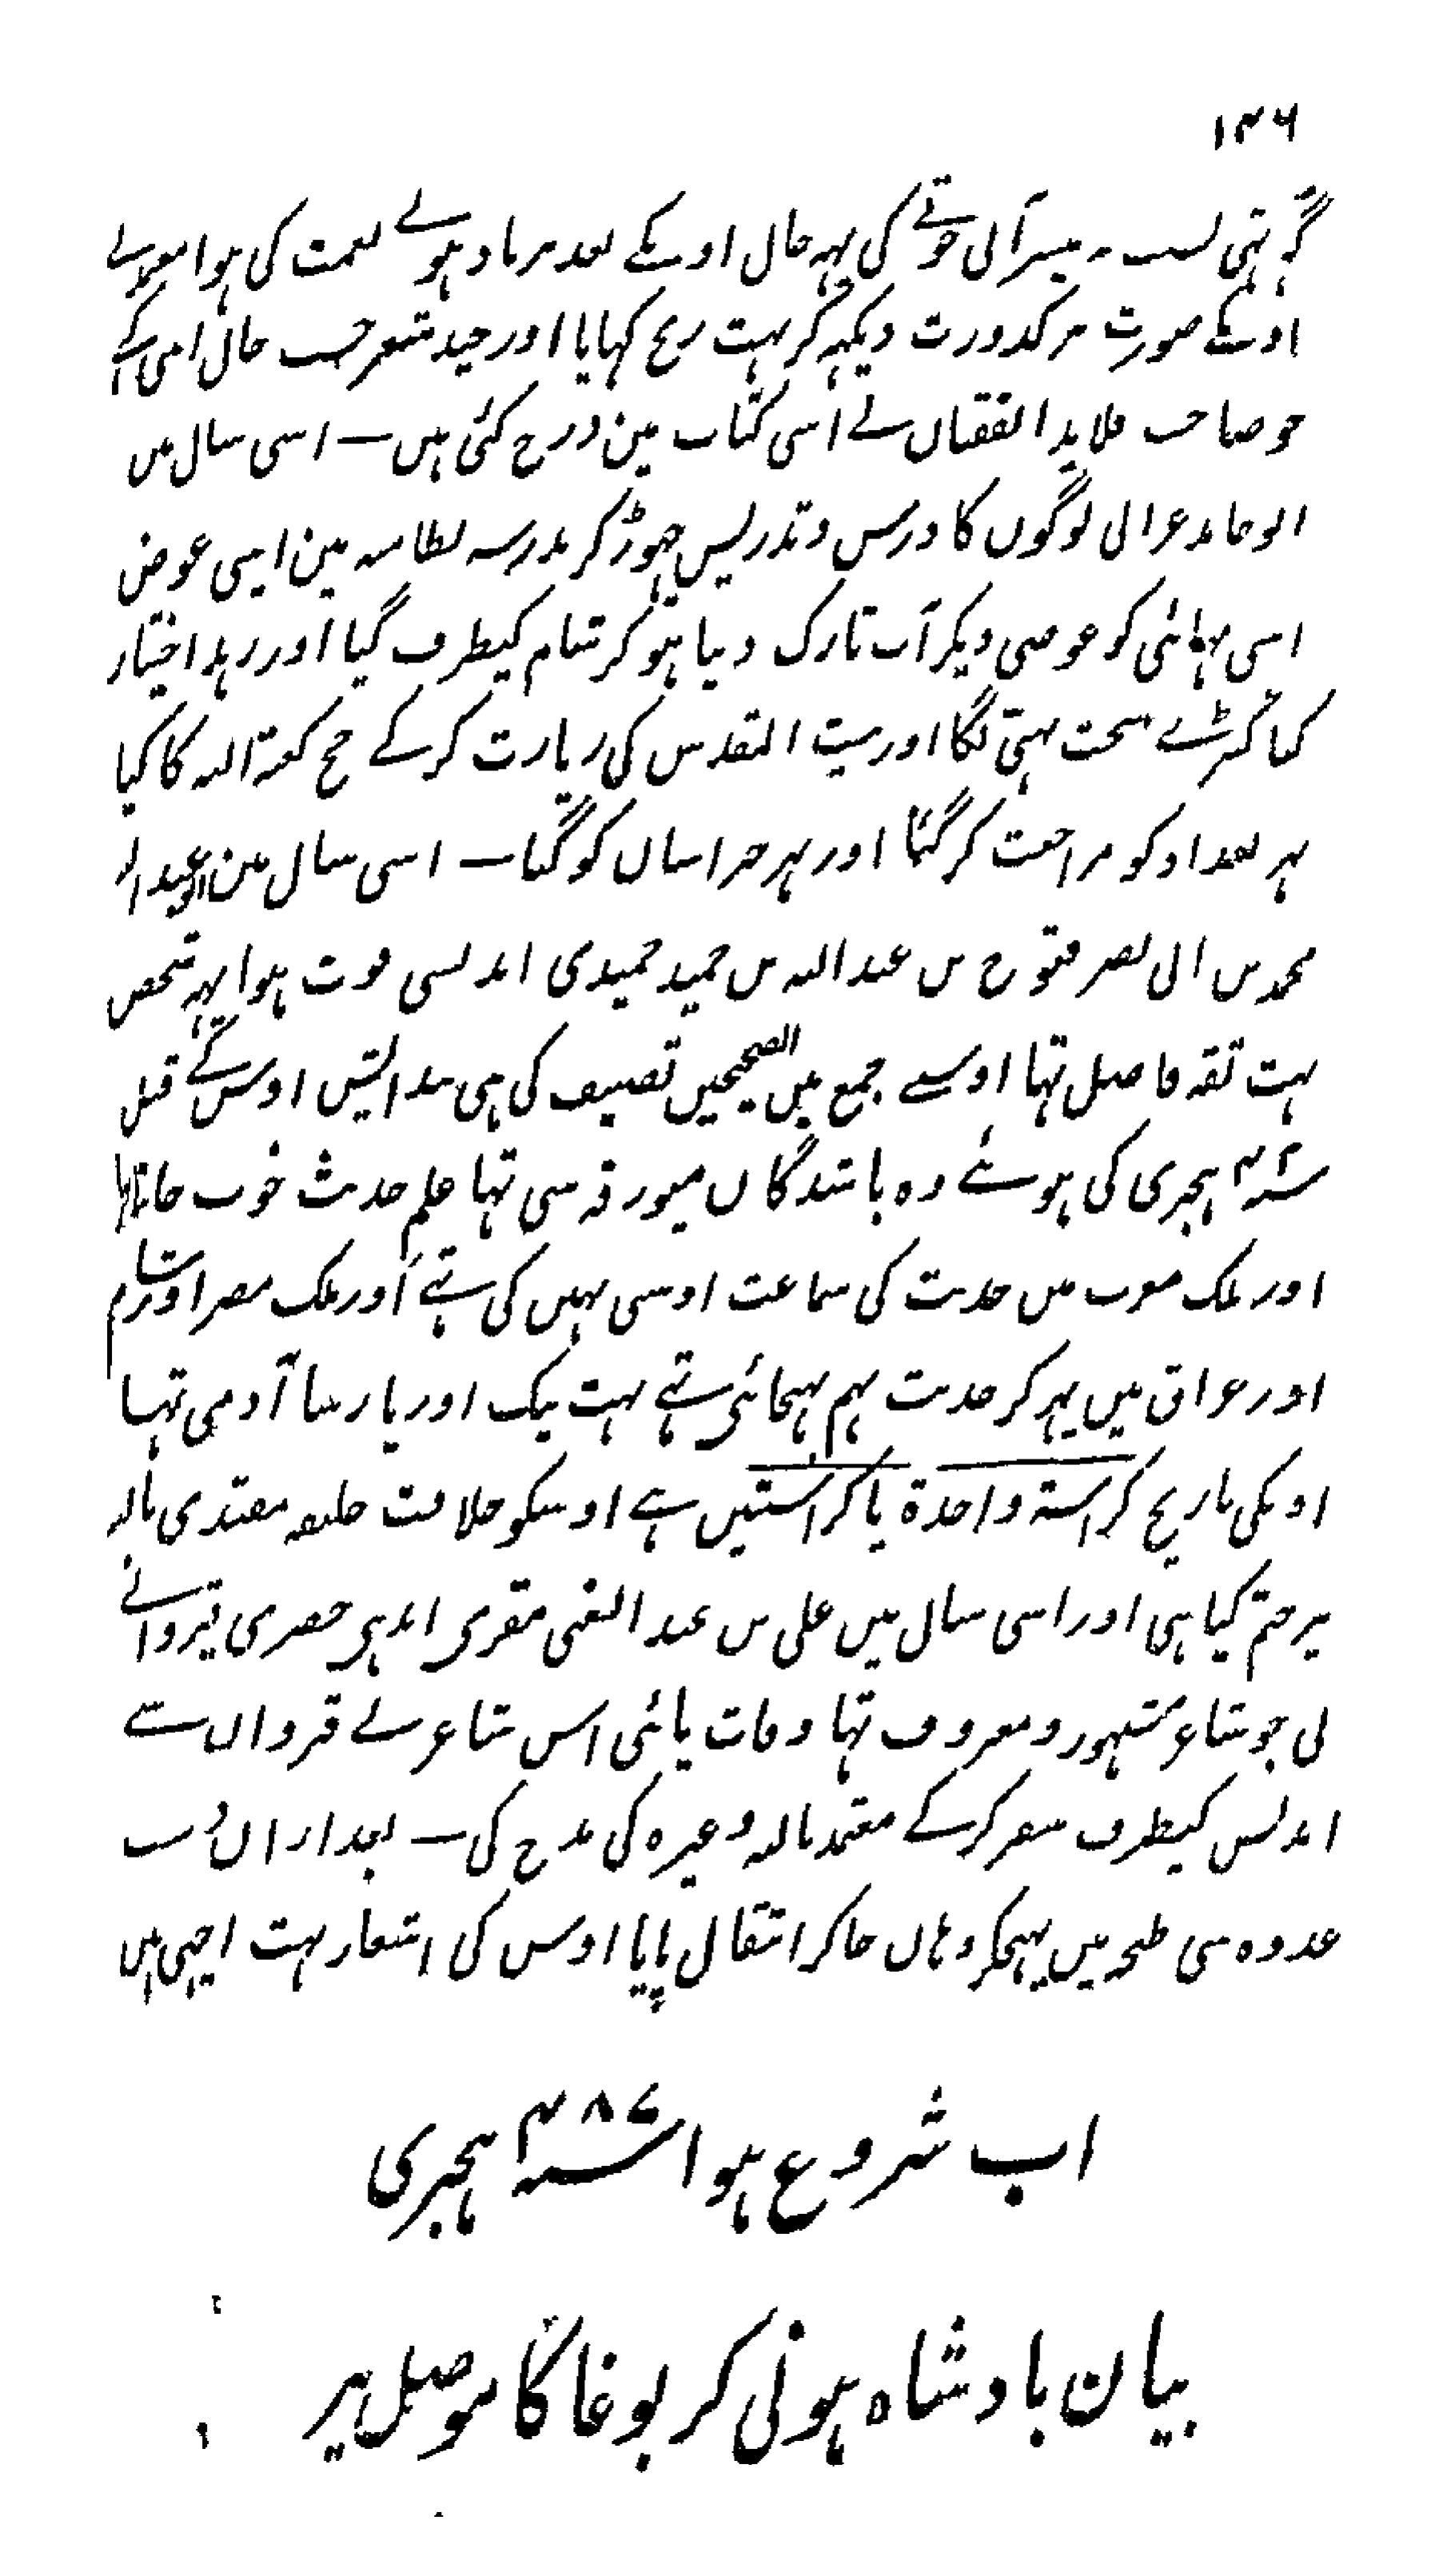 ۱۴۶
گر تہی لسب میسر آلی خوتے کی یہہ حال اوسکے بعد برباد ہونے نعمت کی ہوا
اوسکے صورت پر کدورت دیکہہ کر بہت رنج کہایا اور چند شعر حسب حال اسی کے
جو صاحب قلاید العقیان نے اسی کتاب مین درج کئی ہیں — اسی سال میں
ابو حامد غزالی لوگوں کا درس و تدریس چہوڑ کر مدرسہ نظامیہ مین اپنی عوض
اپنی بہائی کو عوضی دیکر آپ تارک دنیا ہو کر شام کیطرف گیا اور زہد اختیار
کیا کپڑے سخت پہنی لگا اور بیت المقدس کی زیارت کر کے حج کعبۃ اللہ کا کیا
پہر بغداد کو مراجعت کر گیا اور پہر خراساں کو گیا — اسی سال مین ابو عبد اللہ
محمد بن ابی نصر فتوح بن عبد اللہ بن حمید حمیدی اندلسی فوت ہوا یہہ شخص
بہت ثقہ فاضل تہا اوسنے جمع بین الصحیحین تصنیف کی ہی پیدائیش اوس کے قبل
سنہ ۴۲۰ ہجری کی ہوئے وہ باشندگاں میورقہ سی تہا علم حدیث خوب جانتا تہا
اور ملک مغرب میں حدیث کی سماعت اوسی نہیں کی تہے اور ملک مصر اور شام
اور عراق میں پہر کر حدیث بہم پہنچائی تہے بہت نیک اور پارسا آدمی تہا
اوسکی تاریخ کراستہ واحدۃ یا کراستیں ہے اوسکو خلافت خلیفہ مقتدی باللہ
پر ختم کیا ہی اور اسی سال میں علی بن عبد الغنی مقری اندہی حصری قیروانے
نی جو شاعر مشہور و معروف تہا وفات پائی اس شاعر نے قیرواں سے
اندلس کیطرف سفر کر کے معتمد باللہ وغیرہ کی مدح کی — بعد ازاں
عدوہ سی طنجہ میں پہنچکر وہاں جا کر انتقال پایا اوس کی اشعار بہت اچہی ہیں
اب شروع ہوا سنہ ۴۸۷ ہجری
بیان بادشاہ ہونی کربوغا کا موصل پر